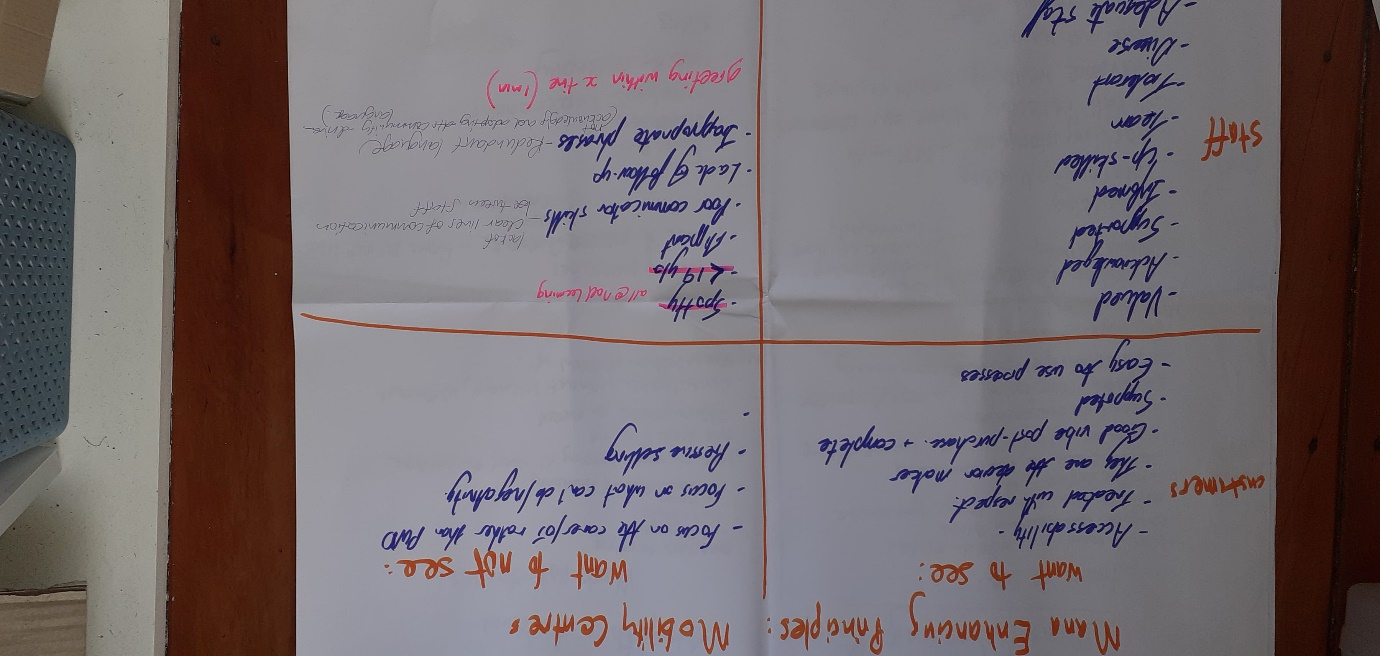 Mana Enhancing Principles: Mobility Centre:
want to see:
customers
- Accessability.
- Treated with respect.
- They are the decision maker
- Good vibe post-purchase. + complete
- Supported
- Easy to use processes
want to not see:
- Focus on the carer/OT rather than PWD
- Focus on what can't do/negativity.
- Pressure selling
-
staff
- Valued
- Acknowledged
- Supported
- Informed
- Up-skilled
- Team
- Tolerant
- Diverse
- Adequate staff
- Spotty all @ Noel Leeming
- <19 yrs
- Flippant
- Poor communicator skills - lack of
clear lines of communication
between staff
- Lack of follow-up
- Inappropriate phrases - Redundant language
(not acknowledging and adopting community
language)
greeting within x time (1 min)